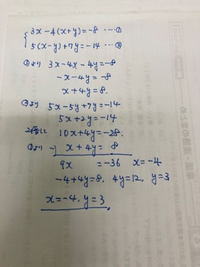 3x-4(x+y)=-8 …①
5(x-y)+7y=-14 …②
①より 3x-4x-4y=-8
-x-4y=-8
x+4y=8.
②より 5x-5y+7y=-14
5x+2y=-14
2倍に 10x+4y=-28.
①より -) x+4y= 8
9x =-36 x=-4
-4+4y=8. 4y=12, y=3
x=-4, y=3